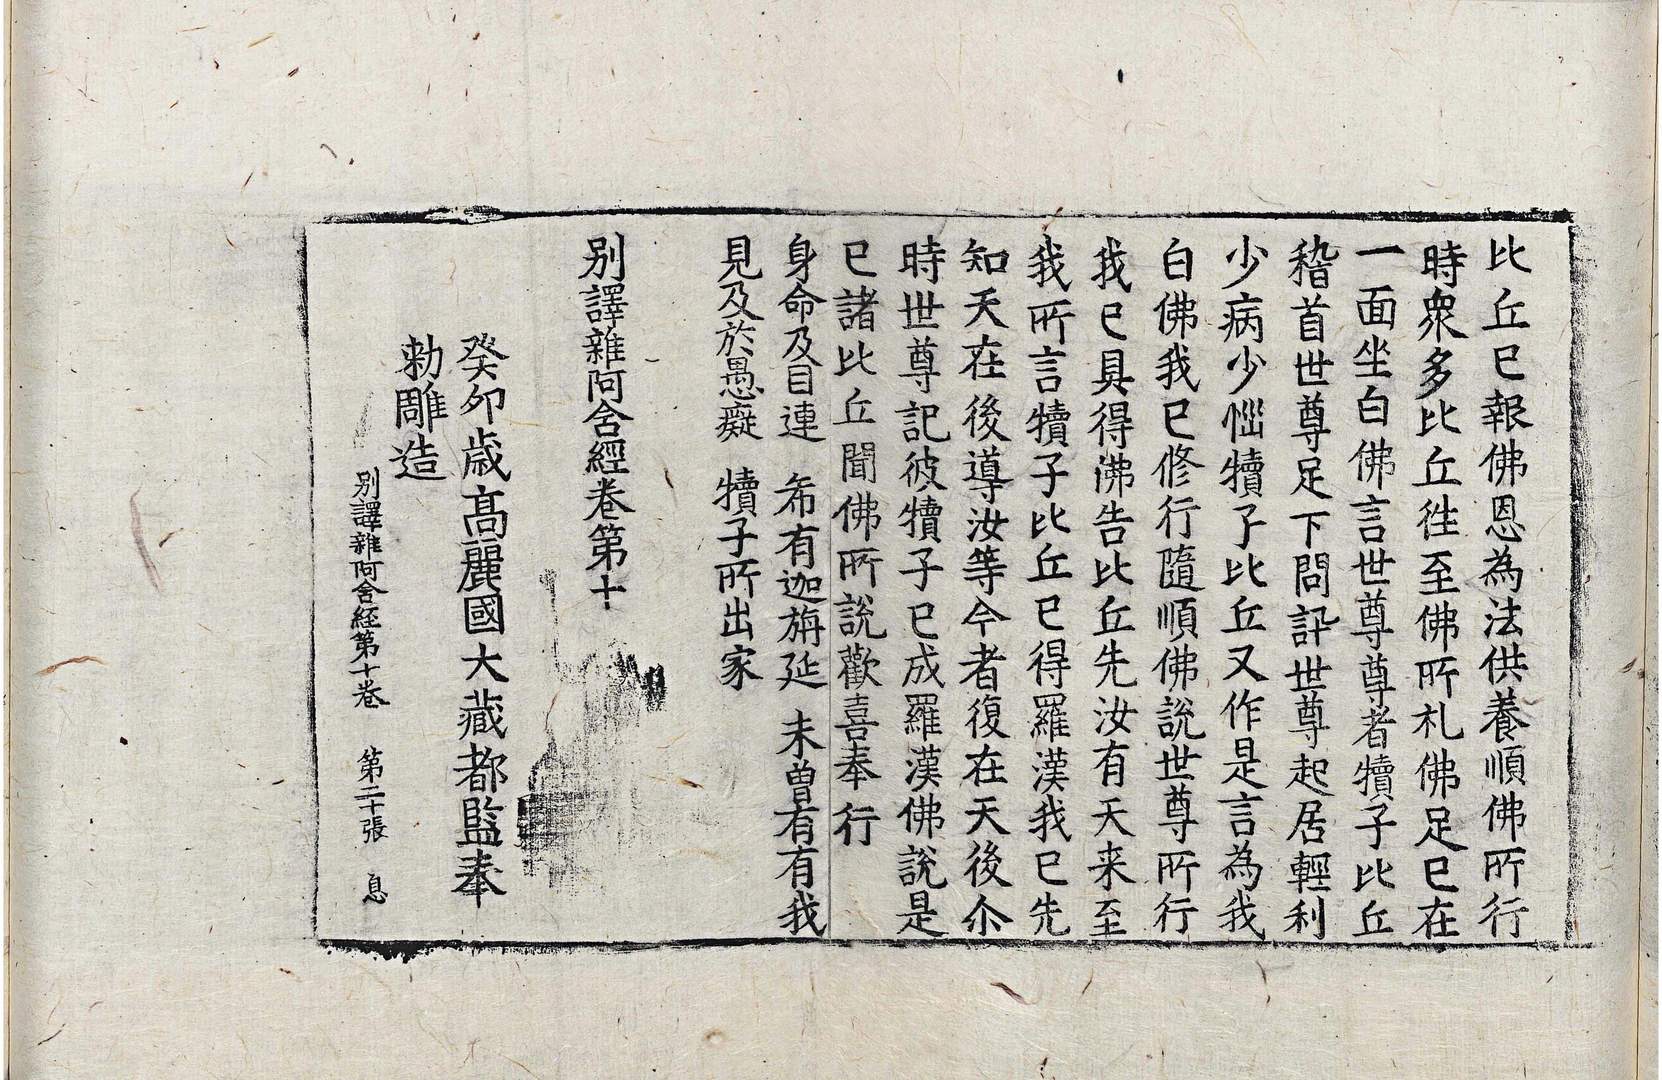 比丘已報佛恩為法供養順佛所行
時衆多比丘徃至佛所礼佛足已在
一面坐白佛言世尊尊者犢子比丘
稽首世尊足下問訊世尊起居輕利
少病少惱犢子比丘又作是言為我
白佛我已修行隨順佛說世尊所行
我已具得佛告比丘先汝有天来至
我所言犢子比丘已得羅漢我已先
知天在後導汝等今者復在天後尒
時世尊記彼犢子已成羅漢佛說是
已諸比丘聞佛所說歡喜奉行
身命及目連 希有迦旃延 未曽有有我
見及於愚癡 犢子所出家
别譯雜阿含經卷第十
癸卯歲髙麗國大藏都監奉
勅雕造
别譯雜阿含經第十卷 第二十張 息